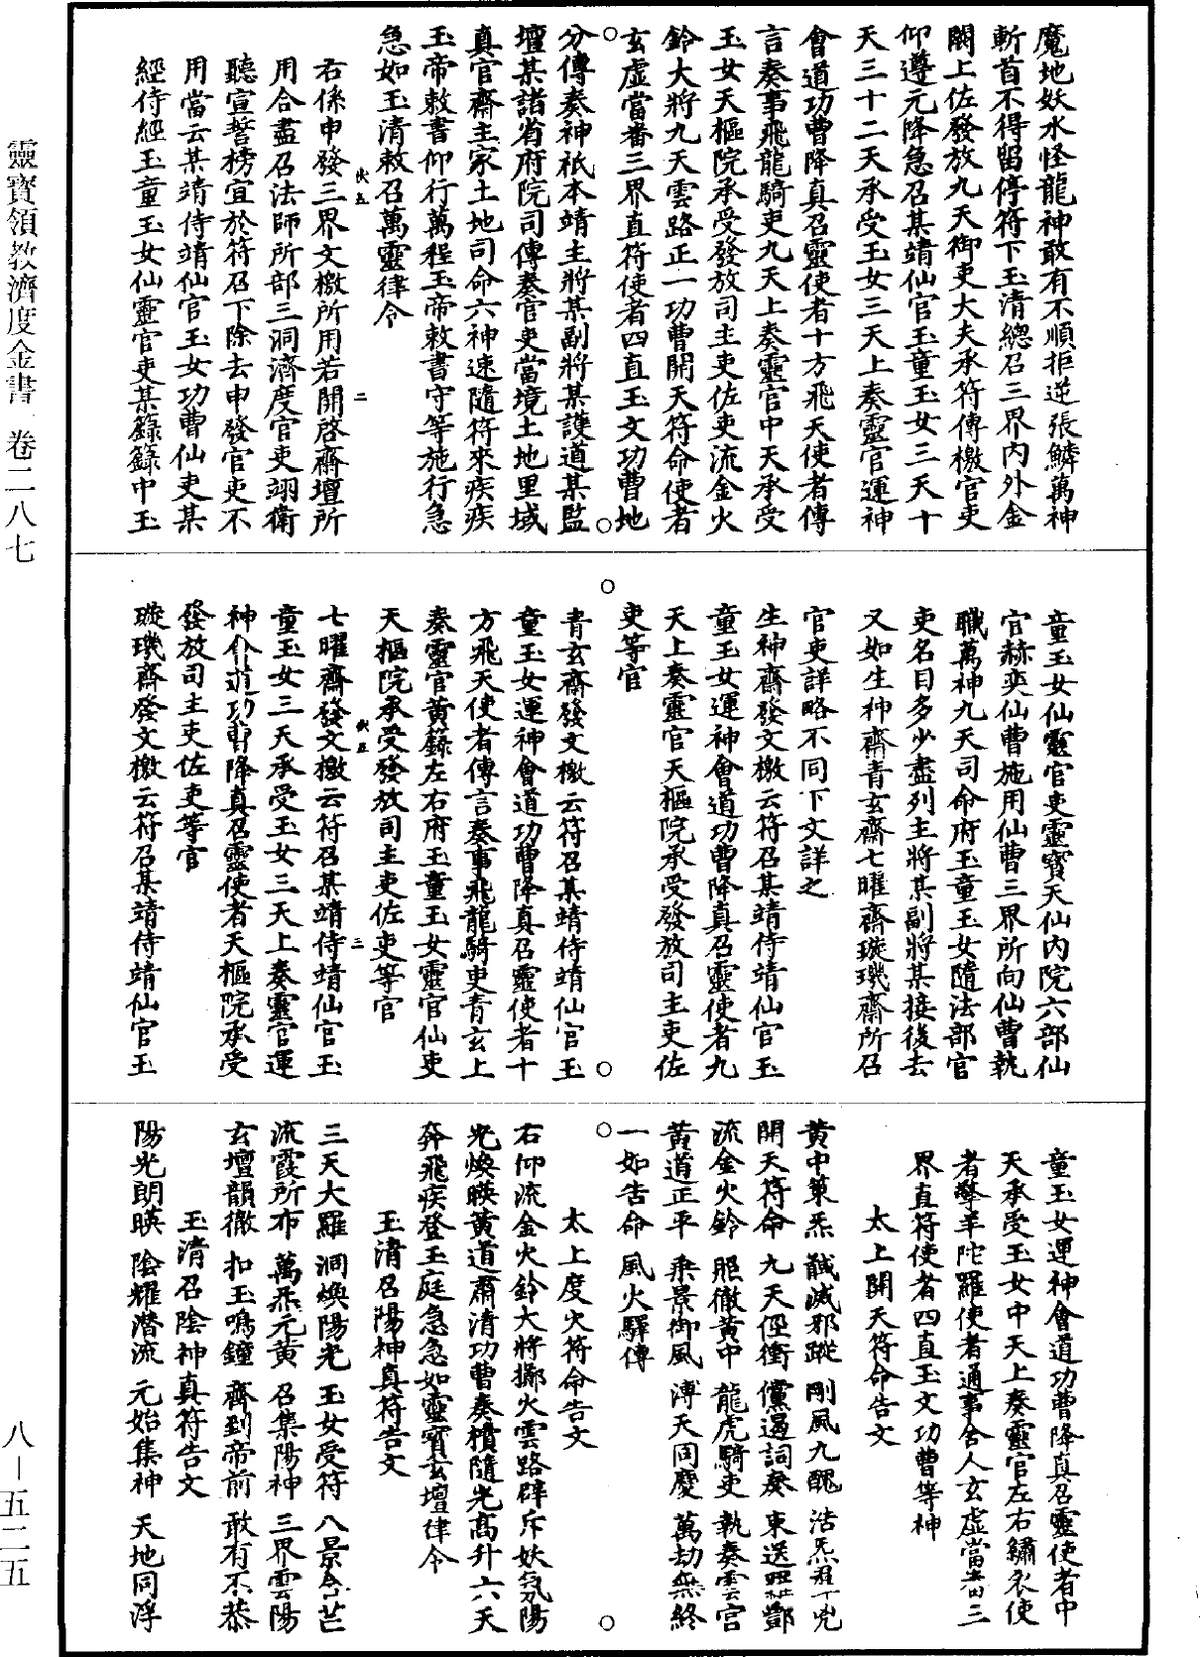 魔地妖水怪龍神敢有不順拒逆張鱗萬神
斬首不得留停符下玉清總召三界內外金
闕上佐發放九天御吏大夫承符傳檄官吏
仰遵元降急召某靖仙官玉童玉女三天十
天三十二天承受玉女三天上奏靈官運神
會道功曹降真召靈使者十方飛天使者傳
言奏事飛龍騎吏九天上奏靈官中天承受
玉女天樞院承受發放司主吏佐吏流金火
鈴大將九天雲路正一功曹開天符命使者
玄虛當番三界直符使者四直玉文功曹地
分傳奏神祇本靖主將某副將某護道某監
壇某諸省府院司傳奏官吏當境土地里域
真官齋主家土地司命六神速隨符來疾疾
玉帝敕書仰行萬程玉帝敕書守等施行急
急如玉清敕召萬靈律令
右係申發三界文檄所用若開啓齋壇所
用合盡召法師所部三洞濟度官吏翊衛
聽宣誓榜宣於符召下除去申發官吏不
用當云某靖侍靖仙官玉女功曹仙吏某
經侍經玉童玉女仙靈官吏某籙籙中玉
童玉女仙靈官吏靈寶天仙內院六部仙
官赫奕仙曹施用仙曹三界所向仙曹執
職萬神九天司命府玉童玉女隨法部官
吏名目多少盡列主將某副將某接後去
又如生神齋青玄齋七曜齋璇璣齋所召
官吏詳略不同下文詳之
生神齋發文檄云符召某靖侍靖仙官玉
童玉女運神會道功曹降真召靈使者九
天上奏靈官天樞院承受發放司主吏佐
吏等官
青玄齋發文檄云符召某靖侍靖仙官玉
童玉女運神會道功曹降真召靈使者十
方飛天使者傳言奏事飛龍騎吏青玄上
奏靈官黃籙左右府玉童玉女靈官仙吏
天樞院承受發放司主吏佐吏等官
七曜齋發文檄云符召某靖侍靖仙官玉
童玉女三天承受玉女三天上奏靈官運
神會道功曹降真召靈使者天樞院承受
發放司主吏佐吏等官
璇璣齋發文檄云符召某靖侍靖仙官玉
童玉女運神會道功曹降真召靈使者中
天承受玉女中天上奏靈官左右繡衣使
者擎羊陀羅使者通事舍人玄虛當番三
界直符使者四直玉文功曹等神
太上開天符命告文
黃中策炁 馘滅邪蹤 剛風九醜 浩炁
開天符命 九天徑衝 儻遏詞奏 束送 酆
流金火鈴 照徹黃中 龍虎騎吏 執奏雲宮
黃道正平 乘景御風 溥天同慶 萬劫無終
一如告命 風火驛傳
太上度火符命告文
右仰流金火鈴大將擲火雲路辟斥妖氛陽
光煥暎黃道肅清功曹奏櫝隨光高升六天
奔飛疾登玉庭急急如靈寶玄壇律令
玉清召陽神真符告文
三天大羅 洞煥陽光 玉女受符 八景含芒
流霞所布 萬炁元黃 召集陽神 三界雲陽
玄壇韻徹 扣玉鳴鐘 齊到帝前 敢有不恭
玉清召陰神真符告文
陽光朗暎 陰耀潛流 元始集神 天地同浮
伏五 二
伏五 三
靈寶領教濟度金書 卷二八七
八—五二五